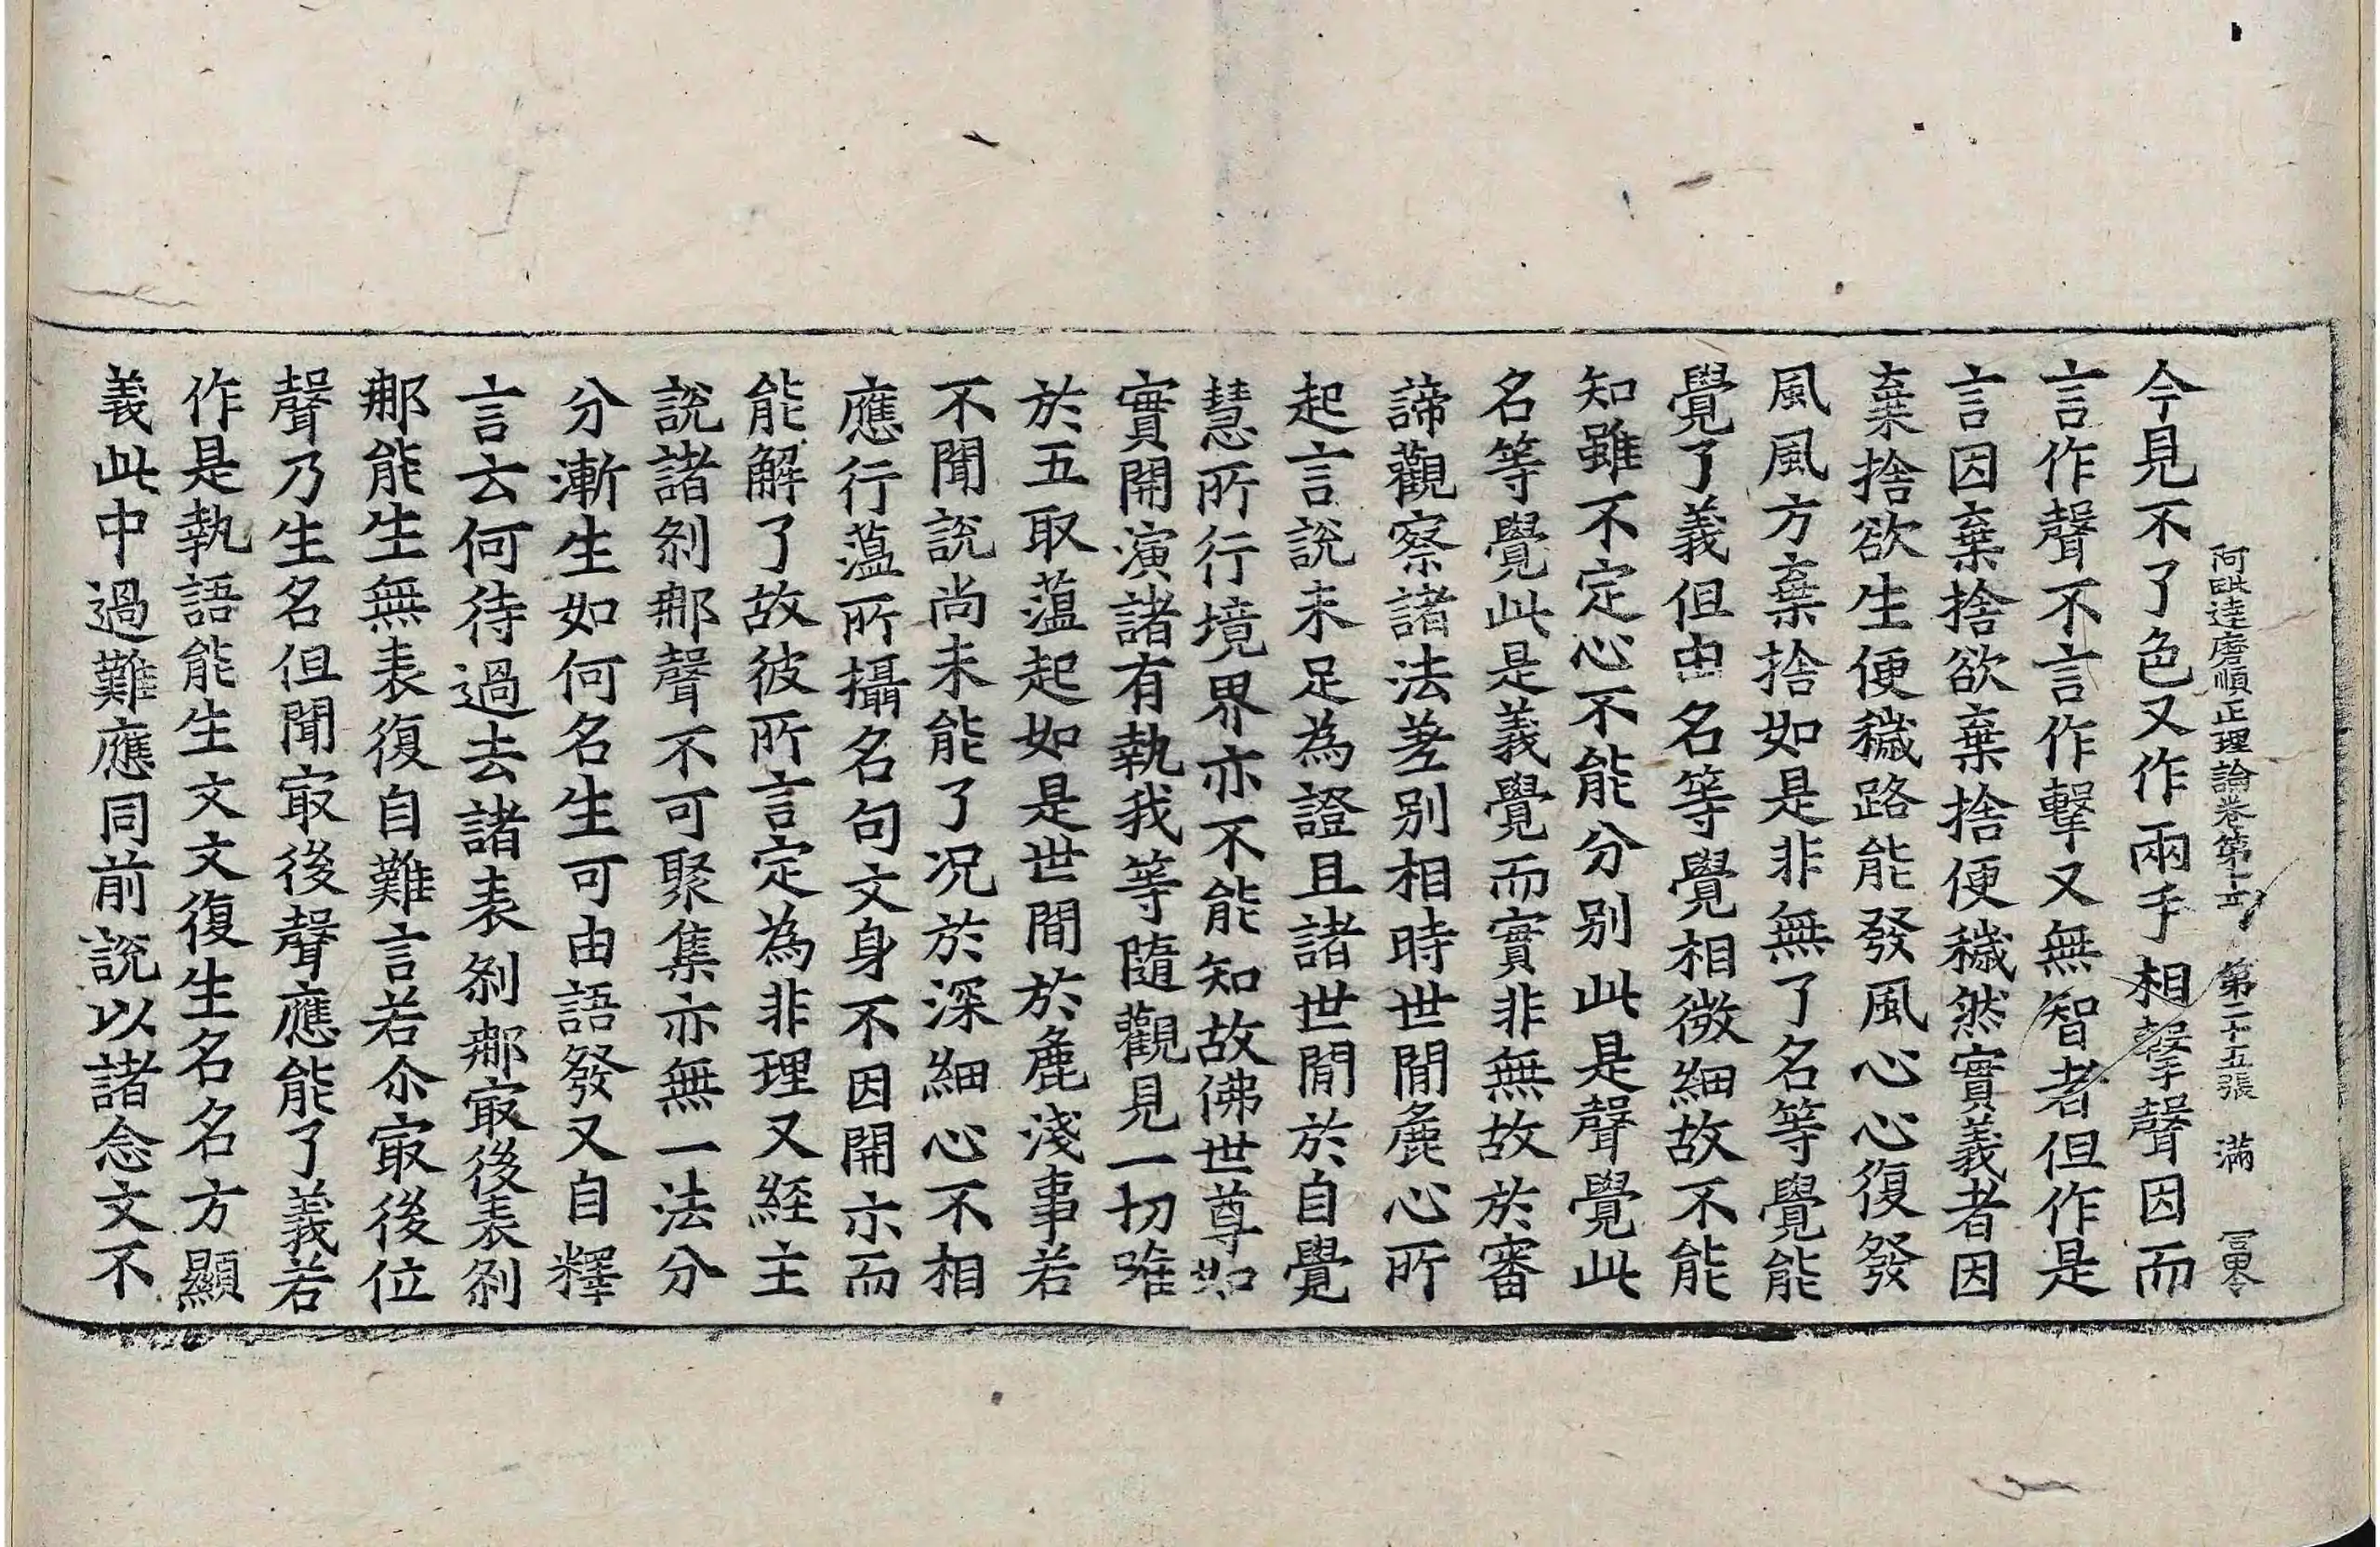 阿毗達磨順正理論卷第十 第二十五張 滿
今見不了色又作兩手相擊聲因而
言作聲不言作擊又無智者但作是
言因棄捨欲棄捨便穢然實義者因
棄捨欲生便穢路能發風心心復發
風風方棄捨如是非無了名等覺能
覺了義但由名等覺相微細故不能
知雖不定心不能分别此是聲覺此
名等覺此是義覺而實非無故於審
諦觀察諸法差别相時世閒麁心所
起言說未足為證且諸世閒於自覺
慧所行境界亦不能知故佛世尊如
實開演諸有執我等隨觀見一切唯
於五取蕰起如是世間於麁淺事若
不聞說尚未能了况於深細心不相
應行蕰所攝名句文身不因開示而
能解了故彼所言定為非理又經主
說諸刹那聲不可聚集亦無一法分
分漸生如何名生可由語發又自釋
言云何待過去諸表刹那㝡後表刹
那能生無表復自難言若尒㝡後位
聲乃生名但聞㝡後聲應能了義若
作是執語能生文文復生名名方顯
義此中過難應同前說以諸念文不